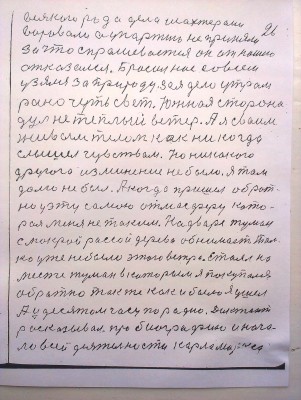 всякого рода дела шахтерами
26
воровали заупартию не приняли
За что спрашевается он от нашево
отказался. Бросил нас совсем
узялся за природу. Зая дело утрам
рано чуть свет. Южная сторона
дул не теплый ветер. А я своим
живем телом как ни когда
слышел чувствам. Но никакого
другого изминение не было. Я там
долго не был. А когда пришел оброт
но у эту самою отмасферу кото-
рая меня не таким. На дваре туман
с мокрай рассой дерево обнимает Там.
ко уже не было этого ветра. Стоял на
месте туман в катором я покупался
обратно так те как и было я ушел
А у десятом часу по радио.
расказывал про биографию и нача-
ло всей деятельности карла маркса